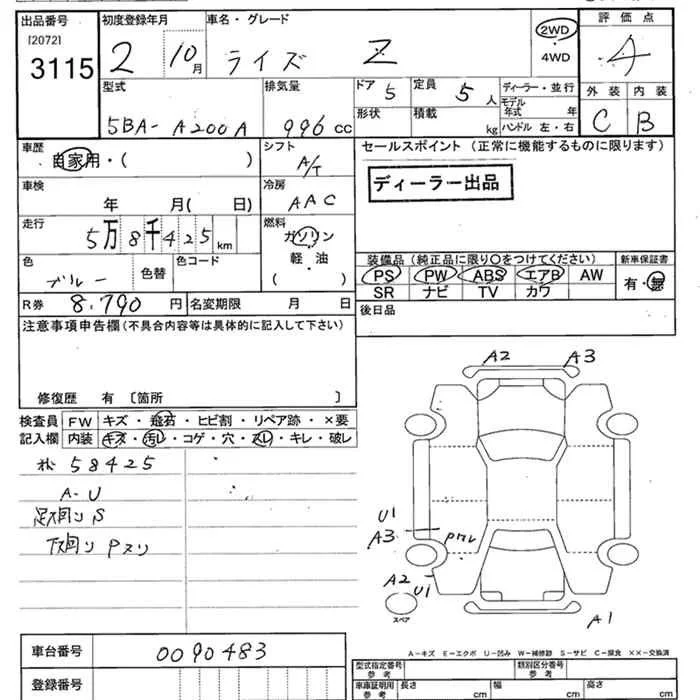 出品番号 初度登録年月 車名・グレード 2WD 評価点
[2072] 3115 2 10月 ライズ Z 4WD 4
型式 排気量 ドア 5 定員 5人 ディーラー・並行 外装 内装
5BA-A200A 996cc 形状 積載 kg モデル年式 年 C B
ハンドル 左・右
車歴 自家用・( ) シフト A/T セールスポイント(正常に機能するものに限ります)
車検 年 月( 日) 冷房 AAC ディーラー出品
走行 5万8千425km 燃料 ガソリン
軽・油
( )
装備品(純正品に限り○をつけてください) 新車保証書
色 ブルー 色替 色コード PS PW ABS エアB AW 有・無
SR ナビ TV カワ
R券 8.790円 名変期限 月 日 後日品
注意事項申告欄(不具合内容等は具体的に記入して下さい)
修復歴 有 〔箇所 〕
検査員 FW キズ・飛石・ヒビ割・リペア跡・×要
記入欄 内装 キズ・汚レ・コゲ・穴・スレ・キレ・破レ
58425
A-U
足廻り S
下廻り Pスリ
A2 A3
U1
A3
A2 U1
A1
スペア
A-キズ E-エクボ U-凹み W-補修跡 S-サビ C-腐食 ××-交換済
車台番号 0090483
登録番号
型式指定番号 参考 類別区分番号 参考
車庫証明用 参考 長さ cm 幅 cm 高さ cm